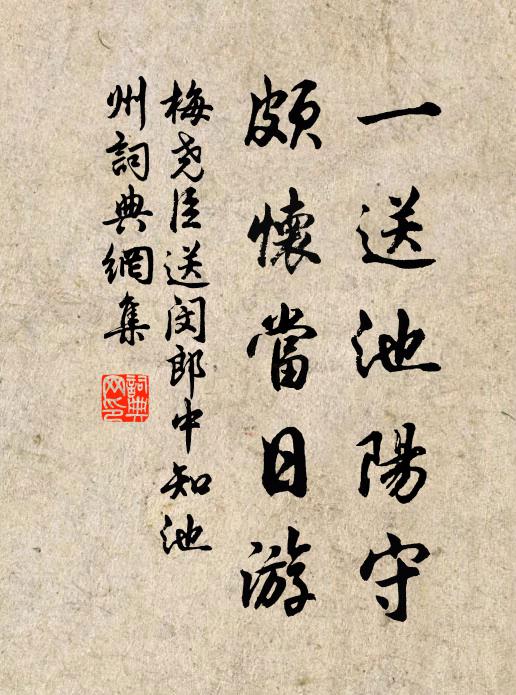 一送池陽守
頗懷當日游
梅堯臣送閔郎中知池
州詞典網集
詞典网印